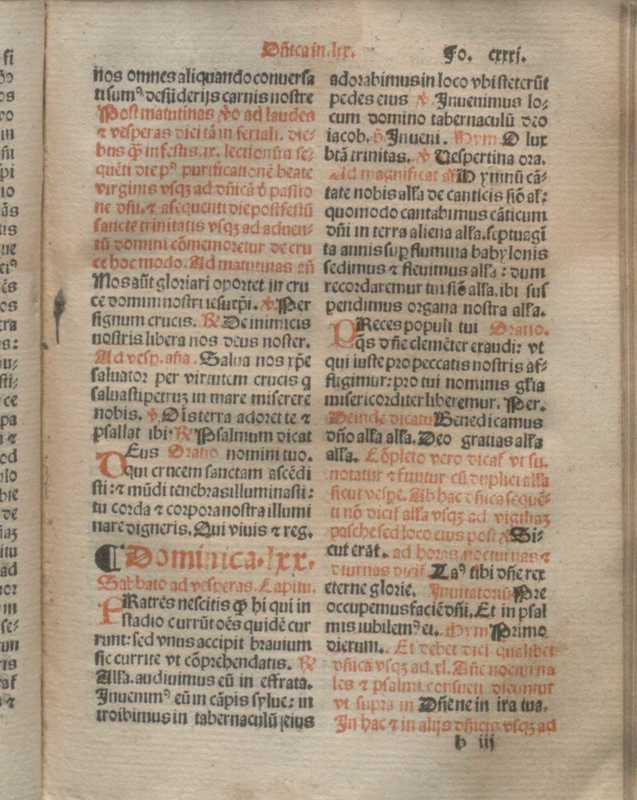 Dñica in .lxx.
Fo. cxxxj.
nos omnes aliquando conuersa
ti sumꝰ desyderijs carnis nostre
Post matutinas ꝟo ad laudes
⁊ vesperas dici tm̄ in feriali. die-
bus q̄ȝ in festis .ix. lectionum se-
quēti die pꝰ purificationē beate
virginis vsqȝ ad dn̄icā ī passio
ne dn̄i. ⁊ a sequenti die post festū
sancte trinitatis vsqȝ ad aduen-
tū domini cōmemoretur de cru
ce hoc modo. Ad matutinas añ
Nos aūt gloriari oportet in cru
ce domini nostri iesu xp̄i. ℣ Per
signum crucis. ℟ De inimicis
nostris libera nos deus noster.
Ad vesp. aña. Salua nos xp̄e
saluator per virtutem crucis q
saluasti petrum in mare miserere
nobis. ℣ Ois terra adoret te ⁊
psallat ibi. ℟ Psalmum dicat
Deus Oratio nomini tuo.
qui crucem sanctam ascēdi
sti: ⁊ mūdi tenebras illuminasti:
tu corda ⁊ corpora nostra illumi
nare digneris. Qui viuis ⁊ reg.
¶ Dominica .lxx.
Sabbato ad vesperas. Capitu.
FRatres nescitis ꝙ hi qui in
stadio currūt oēs quidē cur
runt: sed vnus accipit brauium
sic currite vt cōprehendatis. ℟
Alľa. audiuimus eū in effrata.
Inuenimꝰ eū in cāpis sylue: in
troibimus in tabernaculū eius
adorabimus in loco vbi steterūt
pedes eius ℣ Inuenimus lo-
cum domino tabernaculū deo
iacob. ꝶ Inueni. Hym̄ O lux
btā trinitas. ℣ Uespertina ora.
Ad magnificat añ Hymnū cā-
tate nobis alľa de canticis siō alľ:
quomodo cantabimus cāticum
dn̄i in terra aliena alľa. septuagī
ta annis suꝑ flumina babylonis
sedimus ⁊ fleuimus alľa: dum
recordaremur tui siō alľa. ibi sus
pendimus organa nostra alľa.
PReces populi tui Oratio.
qs dn̄e clemēter exaudi: vt
qui iuste pro peccatis nostris af-
fligimur: pro tui nominis gľia
misericorditer liberemur. Per.
Deinde dicatur Benedicamus
dn̄o alľa alľa. Deo gratias alľa
alľa. Cōpleto vero dicať vt su.
notatur ⁊ finitur cū duplici alľa
sicut vespe. Ab hac dn̄ica sequē-
ti nō dicit̄ alľa vsqȝ ad vigiliaȝ
pasche sed loco eius post ℣ Si-
cut erāt. ad horas nocturnas ⁊
diurnas dicit̄. Laꝰ tibi dn̄e rex
eterne glorie. Inuitatoriū Pre
occupemus faciē dn̄i. Et in psal
mis iubilemꝰ ei. Hym̄ Primo
dierum. Et debet dici qualibet
dn̄ica vsqȝ ad .xl. Añe nocturna
les ⁊ psalmi consueti dicuntur
vt supra in Dn̄e ne in ira tua.
In hac ⁊ in alijs dn̄icis vsqȝ ad
h iij